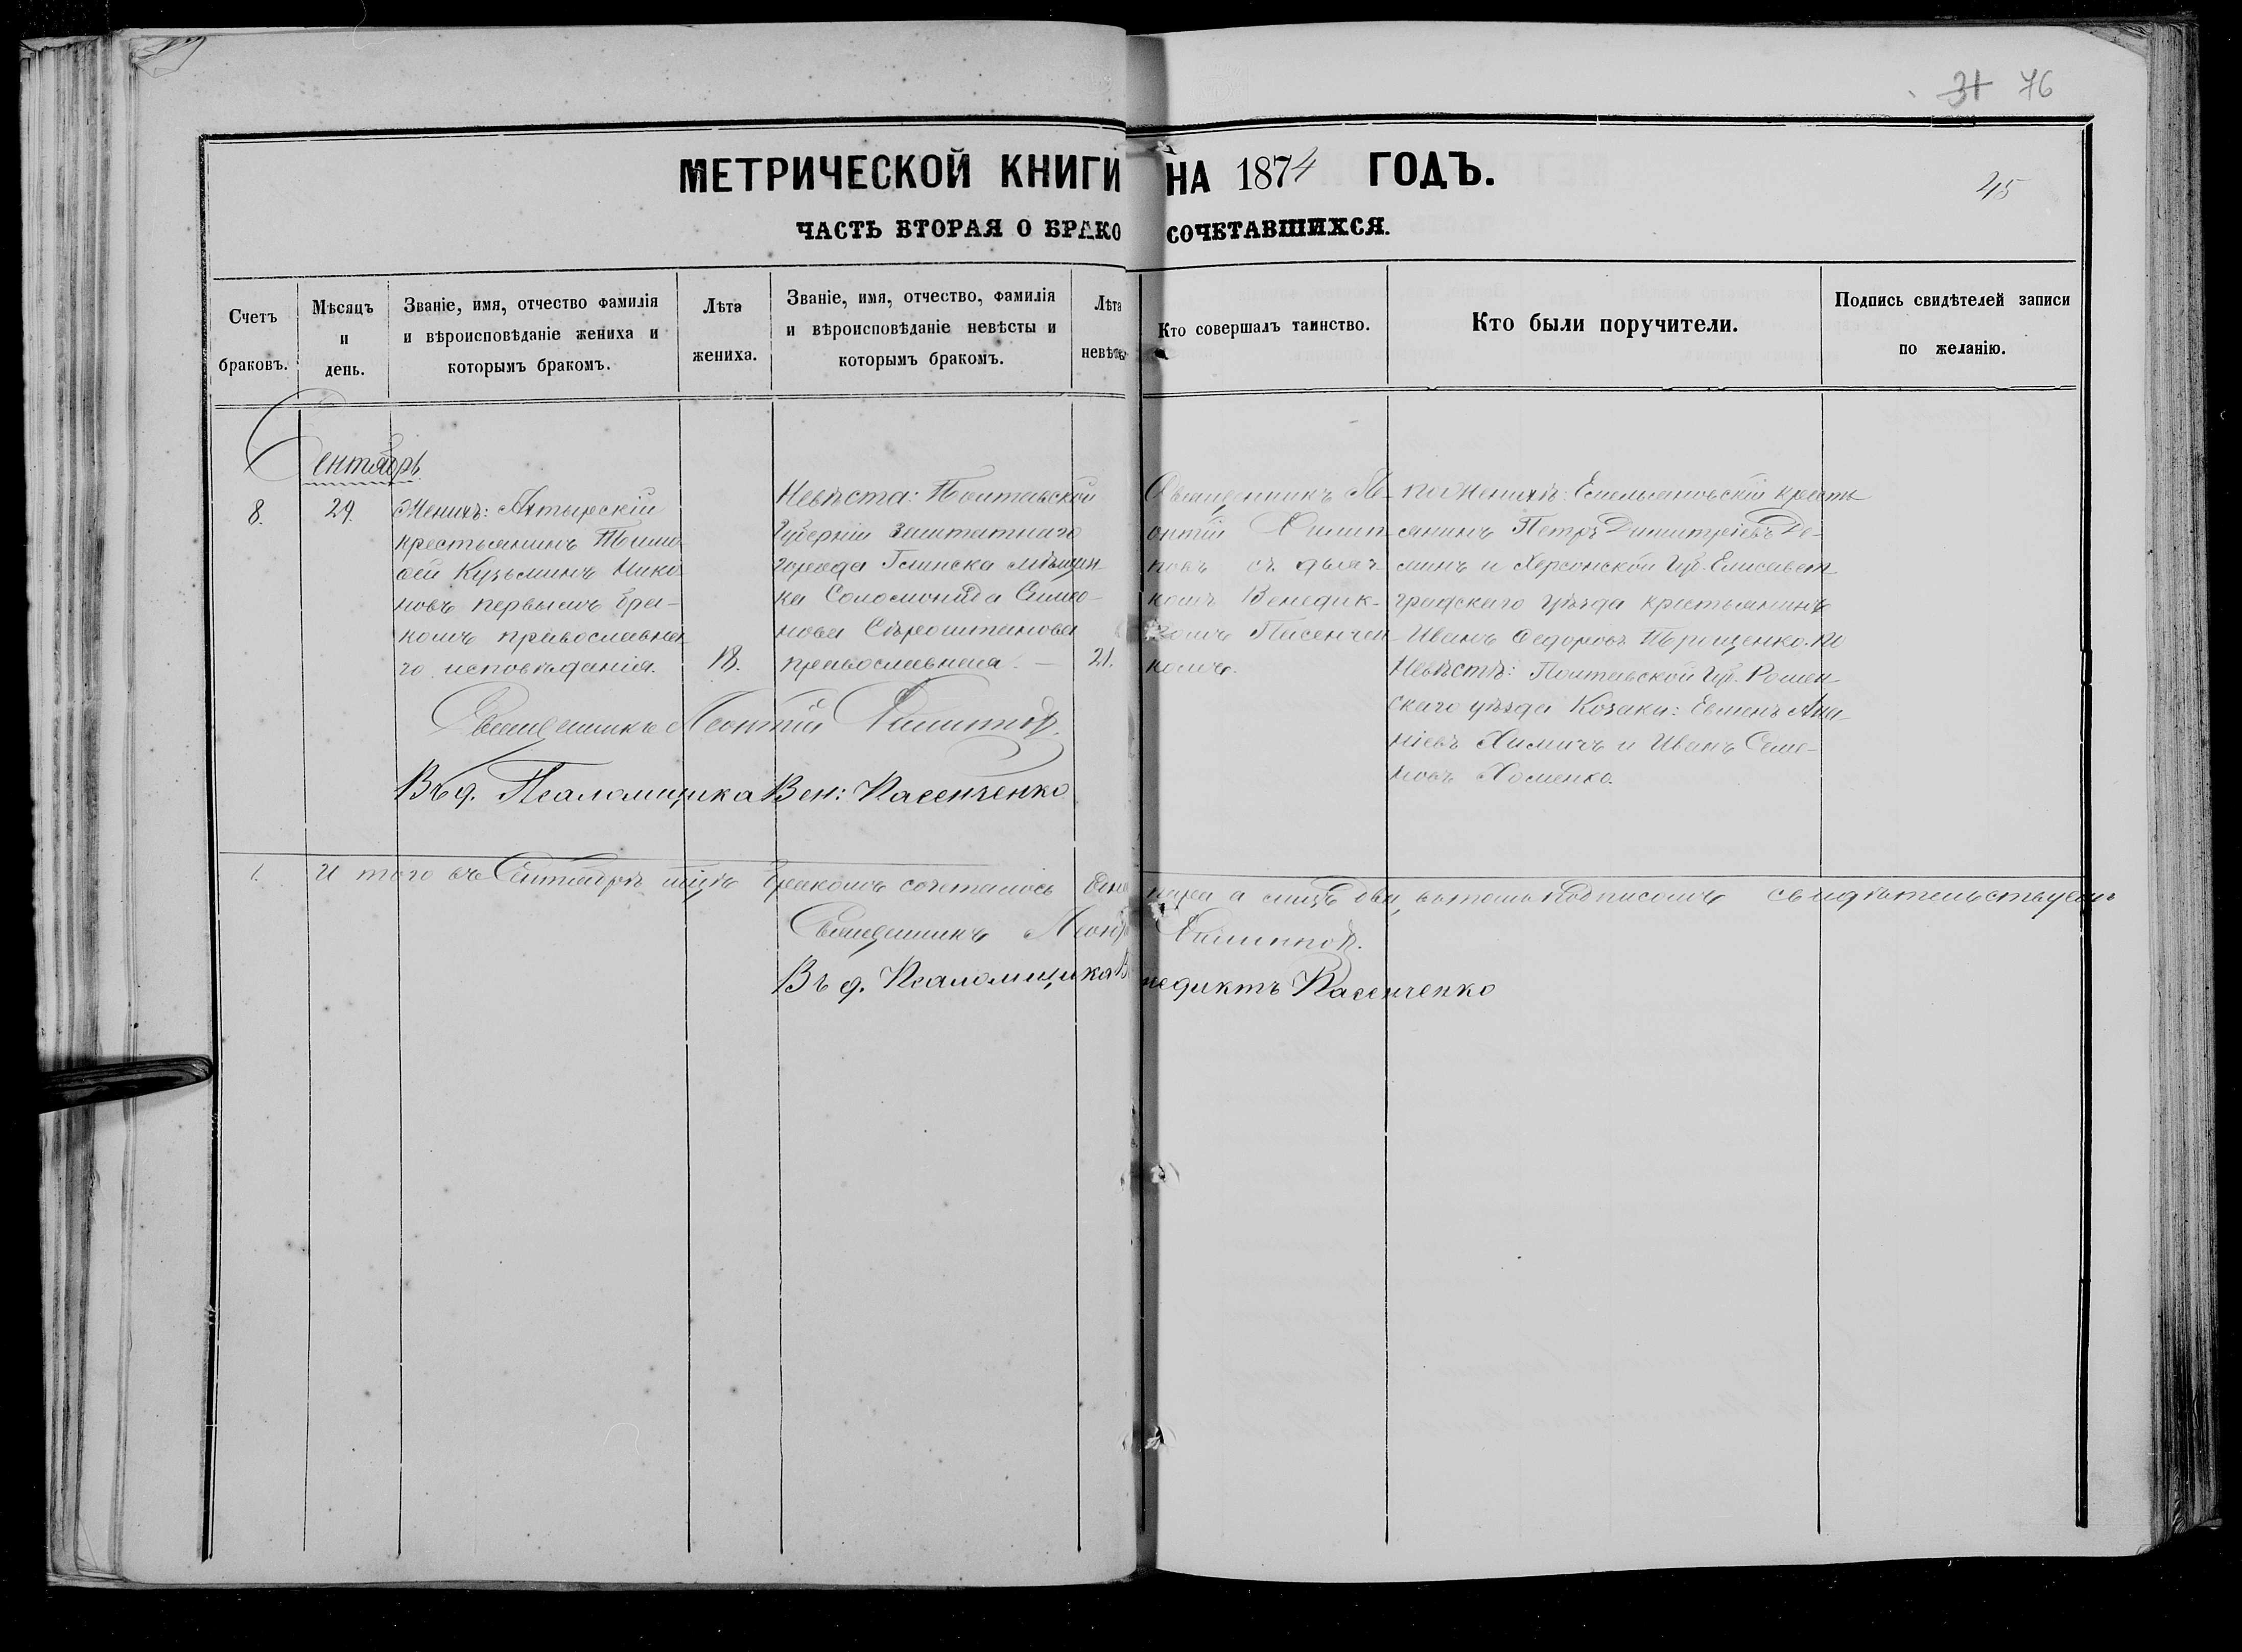 31 76
МЕТРИЧЕСКОЙ КНИГИ НА 1874 ГОДЪ.
45
ЧАСТЬ ВТОРАЯ О БРАКОСОЧЕТАВШИХСЯ.
Счетъ
браковъ.
Мѣсяцъ
и
день.
Званіе, имя, отчество фамилія
и вѣроисповѣданіе жениха и
которымъ бракомъ.
Лѣта
жениха.
Званіе, имя, отчество, фамилія
и вѣроисповѣданіе невѣсты и
которымъ бракомъ.
Лѣта
невѣсты
Кто совершалъ таинство.
Кто были поручители.
Подпись свидѣтелей записи
по желанію.
Сентябрь
8.
29.
Женихъ: Ахтырскій
крестьянинъ Тимо-
ѳей Кузьминъ Нико-
новъ первымъ бра-
комъ православна-
го исповѣданія.
18.
Невѣста: Полтавской
Губерніи Заштатнаго
города Глинска мѣщан-
ка Соломонида Симо-
нова Сѣроштанова
православная. —
21.
Священникъ Ле-
онтій Филип-
повъ съ дьяч-
комъ Венедик-
томъ Пасенчен-
комъ.
по Женихѣ: Емельяновскій кресть-
янинъ Петръ Димитріевъ Де-
минъ и Херсонской Губ. Елисавет-
градскаго уѣзда крестьянинъ
Иванъ Ѳедоровъ Трощенко. по
Невѣстѣ: Полтавской Губ. Ромен-
скаго уѣзда Козаки: Евменъ Ана-
ніевъ Химичъ и Иванъ Семе-
новъ Хоменко.
Священникъ Леонтій Филиппов.
Въ д. Псаломщика Вен: Пасенченко
1. И того въ Сентябрѣ мцѣ бракомъ сочеталось одна пара а лицъ два, въ томъ подписомъ свидѣтельствуемъ
Священникъ Леонтій Филиппов.
Въ д. Псаломщика Венедиктъ Пасенченко